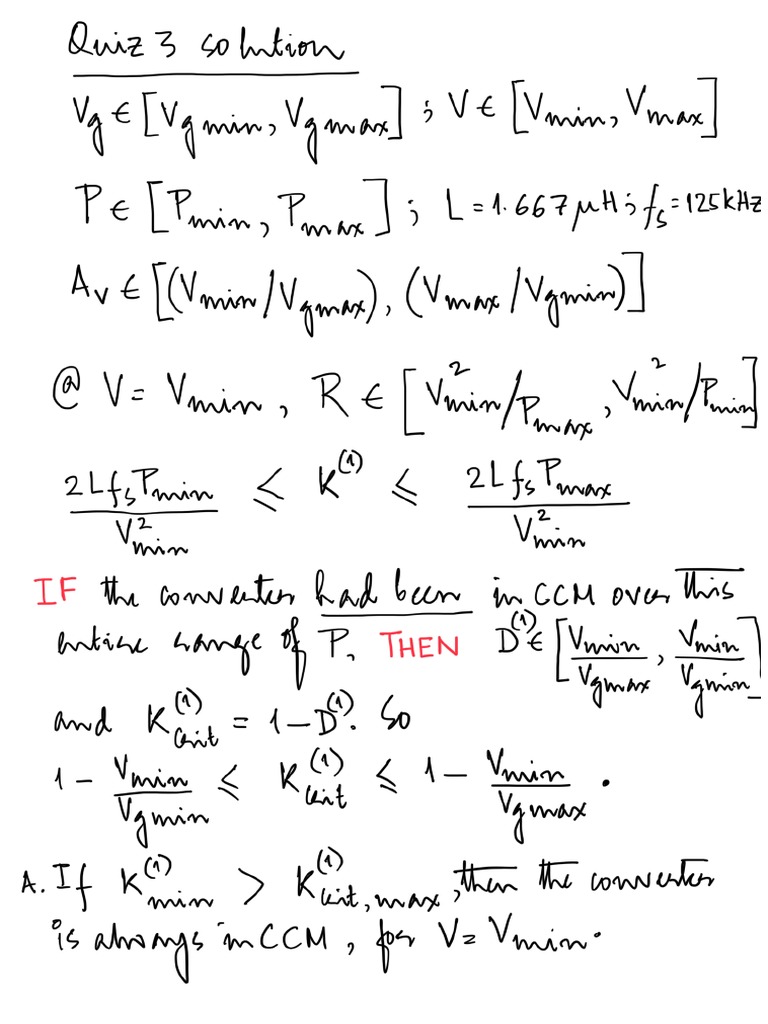 Quiz 3 solution
Vg ∈ [Vgmin, Vgmax] ; V ∈ [Vmin, Vmax]
P ∈ [Pmin, Pmax] ; L = 1.667 μH ; fs = 125 kHz
Av ∈ [(Vmin/Vgmax), (Vmax/Vgmin)]
@ V = Vmin, R ∈ [V²min/Pmax, V²min/Pmin]
2LfsPmin/V²min ≤ K⁽¹⁾ ≤ 2LfsPmax/V²min
IF the converter had been in CCM over this
entire range of P, THEN D⁽¹⁾ ∈ [Vmin/Vgmax, Vmin/Vgmin]
and K⁽¹⁾crit = 1 – D⁽¹⁾. So
1 – Vmin/Vgmin ≤ K⁽¹⁾crit ≤ 1 – Vmin/Vgmax .
A. If K⁽¹⁾min > K⁽¹⁾crit, max, then the converter
is always in CCM, for V = Vmin.